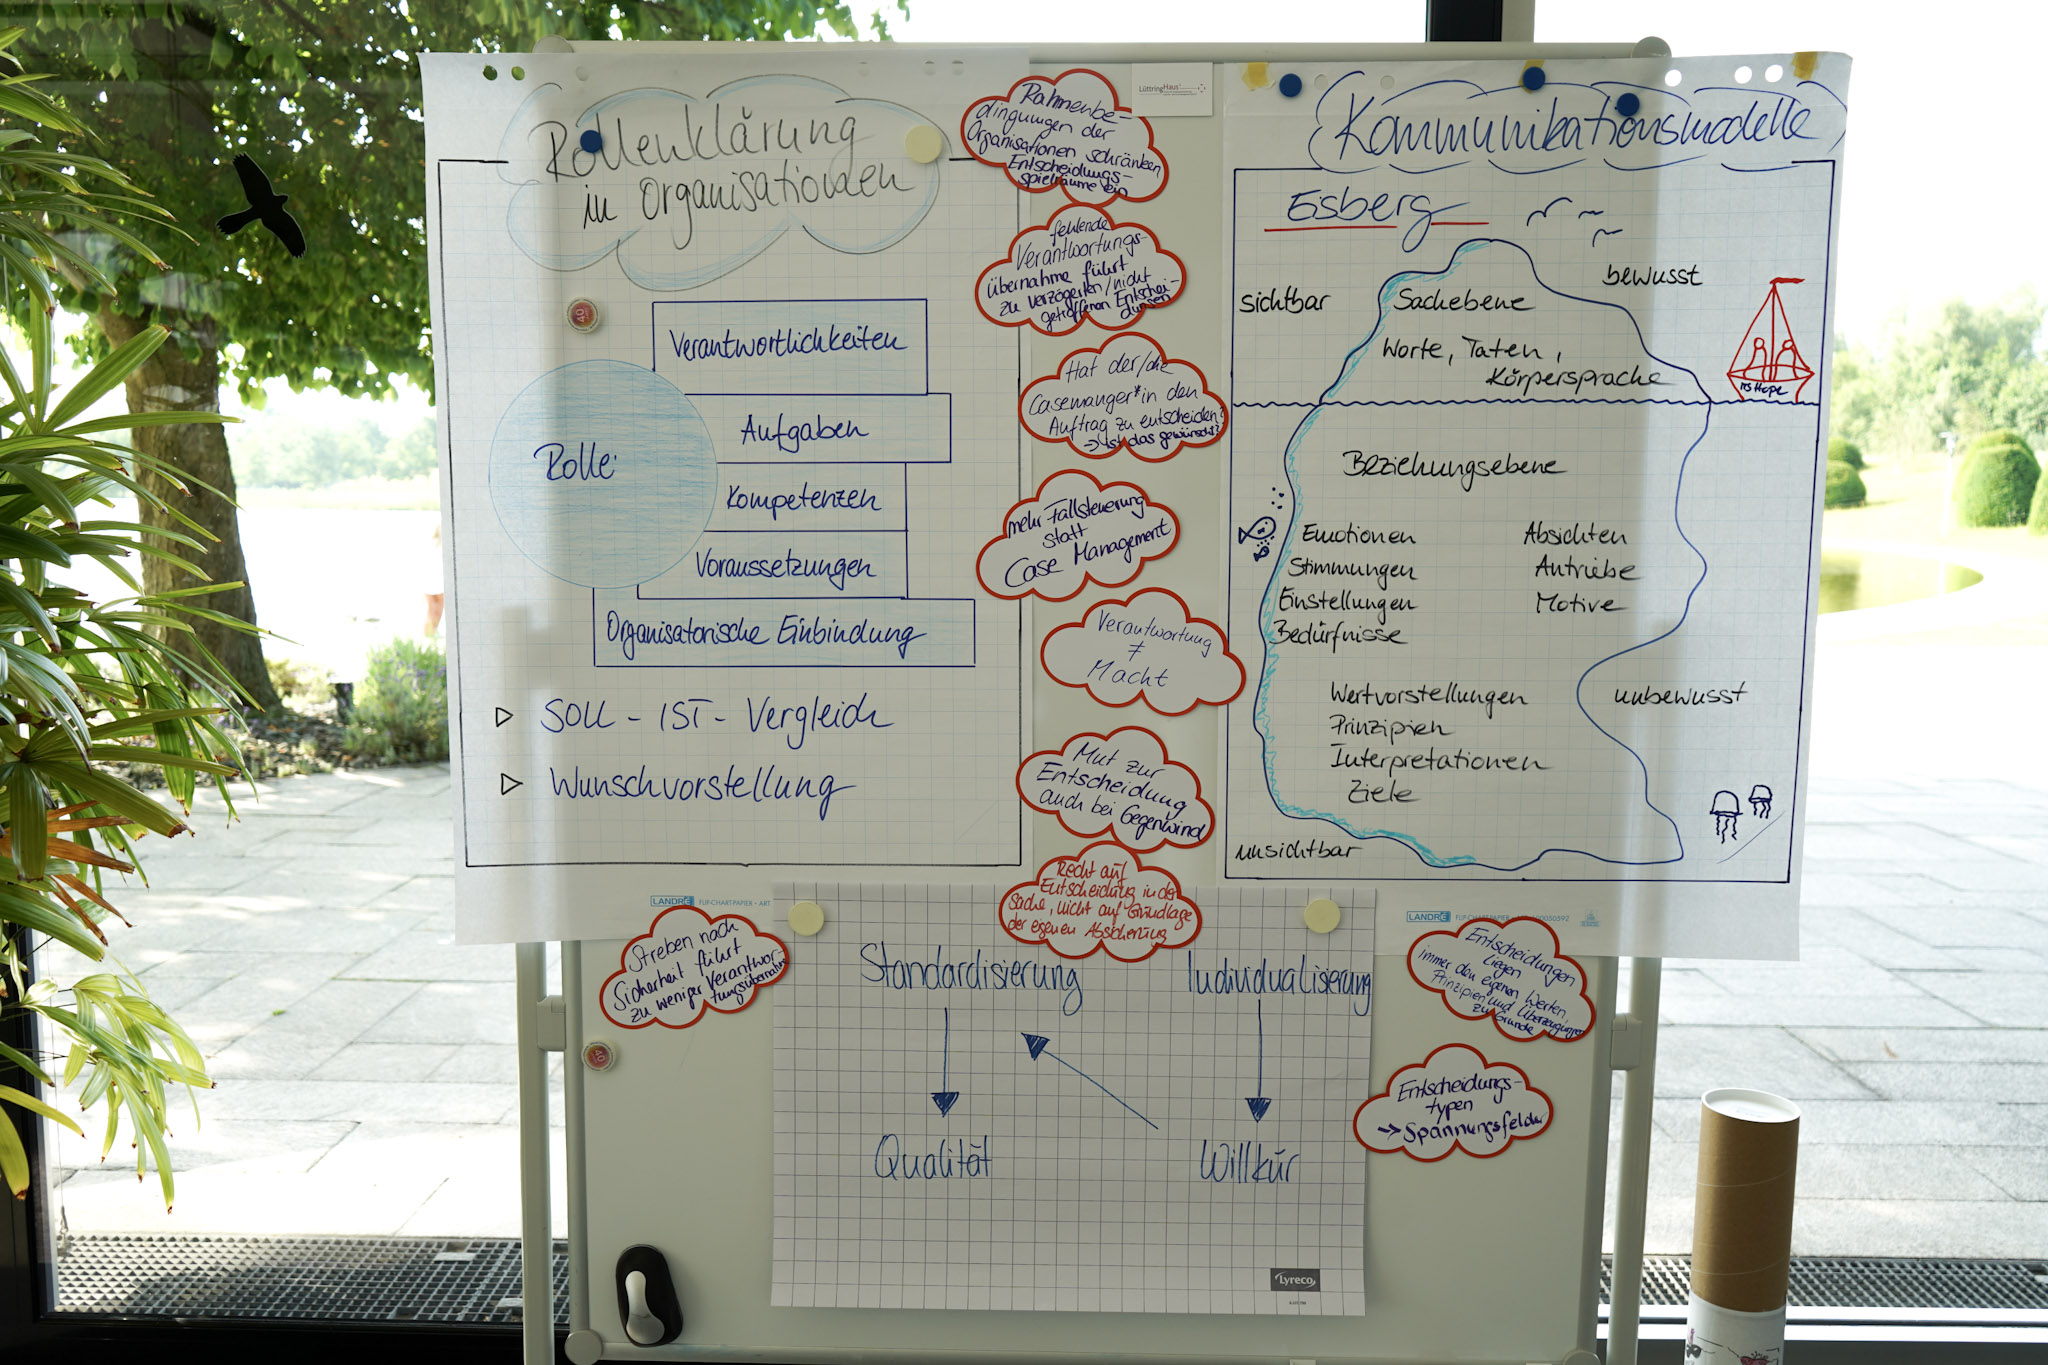 Rollenklärung
in Organisationen
Verantwortlichkeiten
Aufgaben
Rolle
Kompetenzen
Voraussetzungen
Organisatorische Einbindung
SOLL - IST - Vergleich
Wunschvorstellung
LANDRÉ FLIP-CHART-PAPIER • ART
LüttringHaus
Rahmenbe-
dingungen der
Organisationen schränken
Entscheidungs-
spielräume ein
fehlende
Verantwortungs-
übernahme führt
zu verzögerten/nicht
getroffenen Entschei-
dungen
Hat der/die
Casemanger*in den
Auftrag zu entscheiden?
-> Ist das gewünscht?
mehr Fallsteuerung
statt
Case Management
Verantwortung
≠
Macht
Mut zur
Entscheidung
auch bei Gegenwind
Recht auf
Entscheidung in der
Sache, nicht auf Grundlage
der eigenen Absicherung
Kommunikationsmodelle
Eisberg
sichtbar
bewusst
Sachebene
Worte, Taten,
Körpersprache
MS Hope
Beziehungsebene
Emotionen Absichten
Stimmungen Antriebe
Einstellungen Motive
Bedürfnisse
Wertvorstellungen
unbewusst
Prinzipien
Interpretationen
Ziele
unsichtbar
LANDRÉ FLIP-CHART-PAPIER
Streben nach
Sicherheit führt
zu weniger Verantwor-
tungsübernahme
Standardisierung Individualisierung
Qualität Willkür
Lyreco
Entscheidungen
liegen
immer den eigenen Werten,
Prinzipien und Überzeugungen
zu Grunde
Entscheidungs-
typen
-> Spannungsfelder
40
40